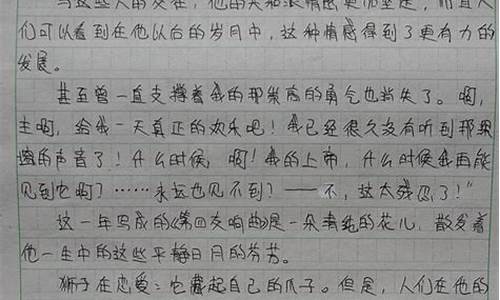 与这些人的交往，他的共和派情感更加坚定，而且人
们可以看到在他以后的岁月中，这种情感得到了更有力的
发展。
甚至曾一直支撑着我的那崇高的勇气也消失了。啊，
主啊，给我一天真正的欢乐吧！我已经很久没有听到那
的声音了！什么时候，啊！我的上帝，什么时候我再能
见到它啊？……永远也见不到？——不，这太残忍了！”
这一年写成的《第四交响曲》是一朵
的花儿，散发着
他一生中的这些平静日月的芬芳。
狮子在恋爱：它藏起自己的爪子。但是，人们在他的